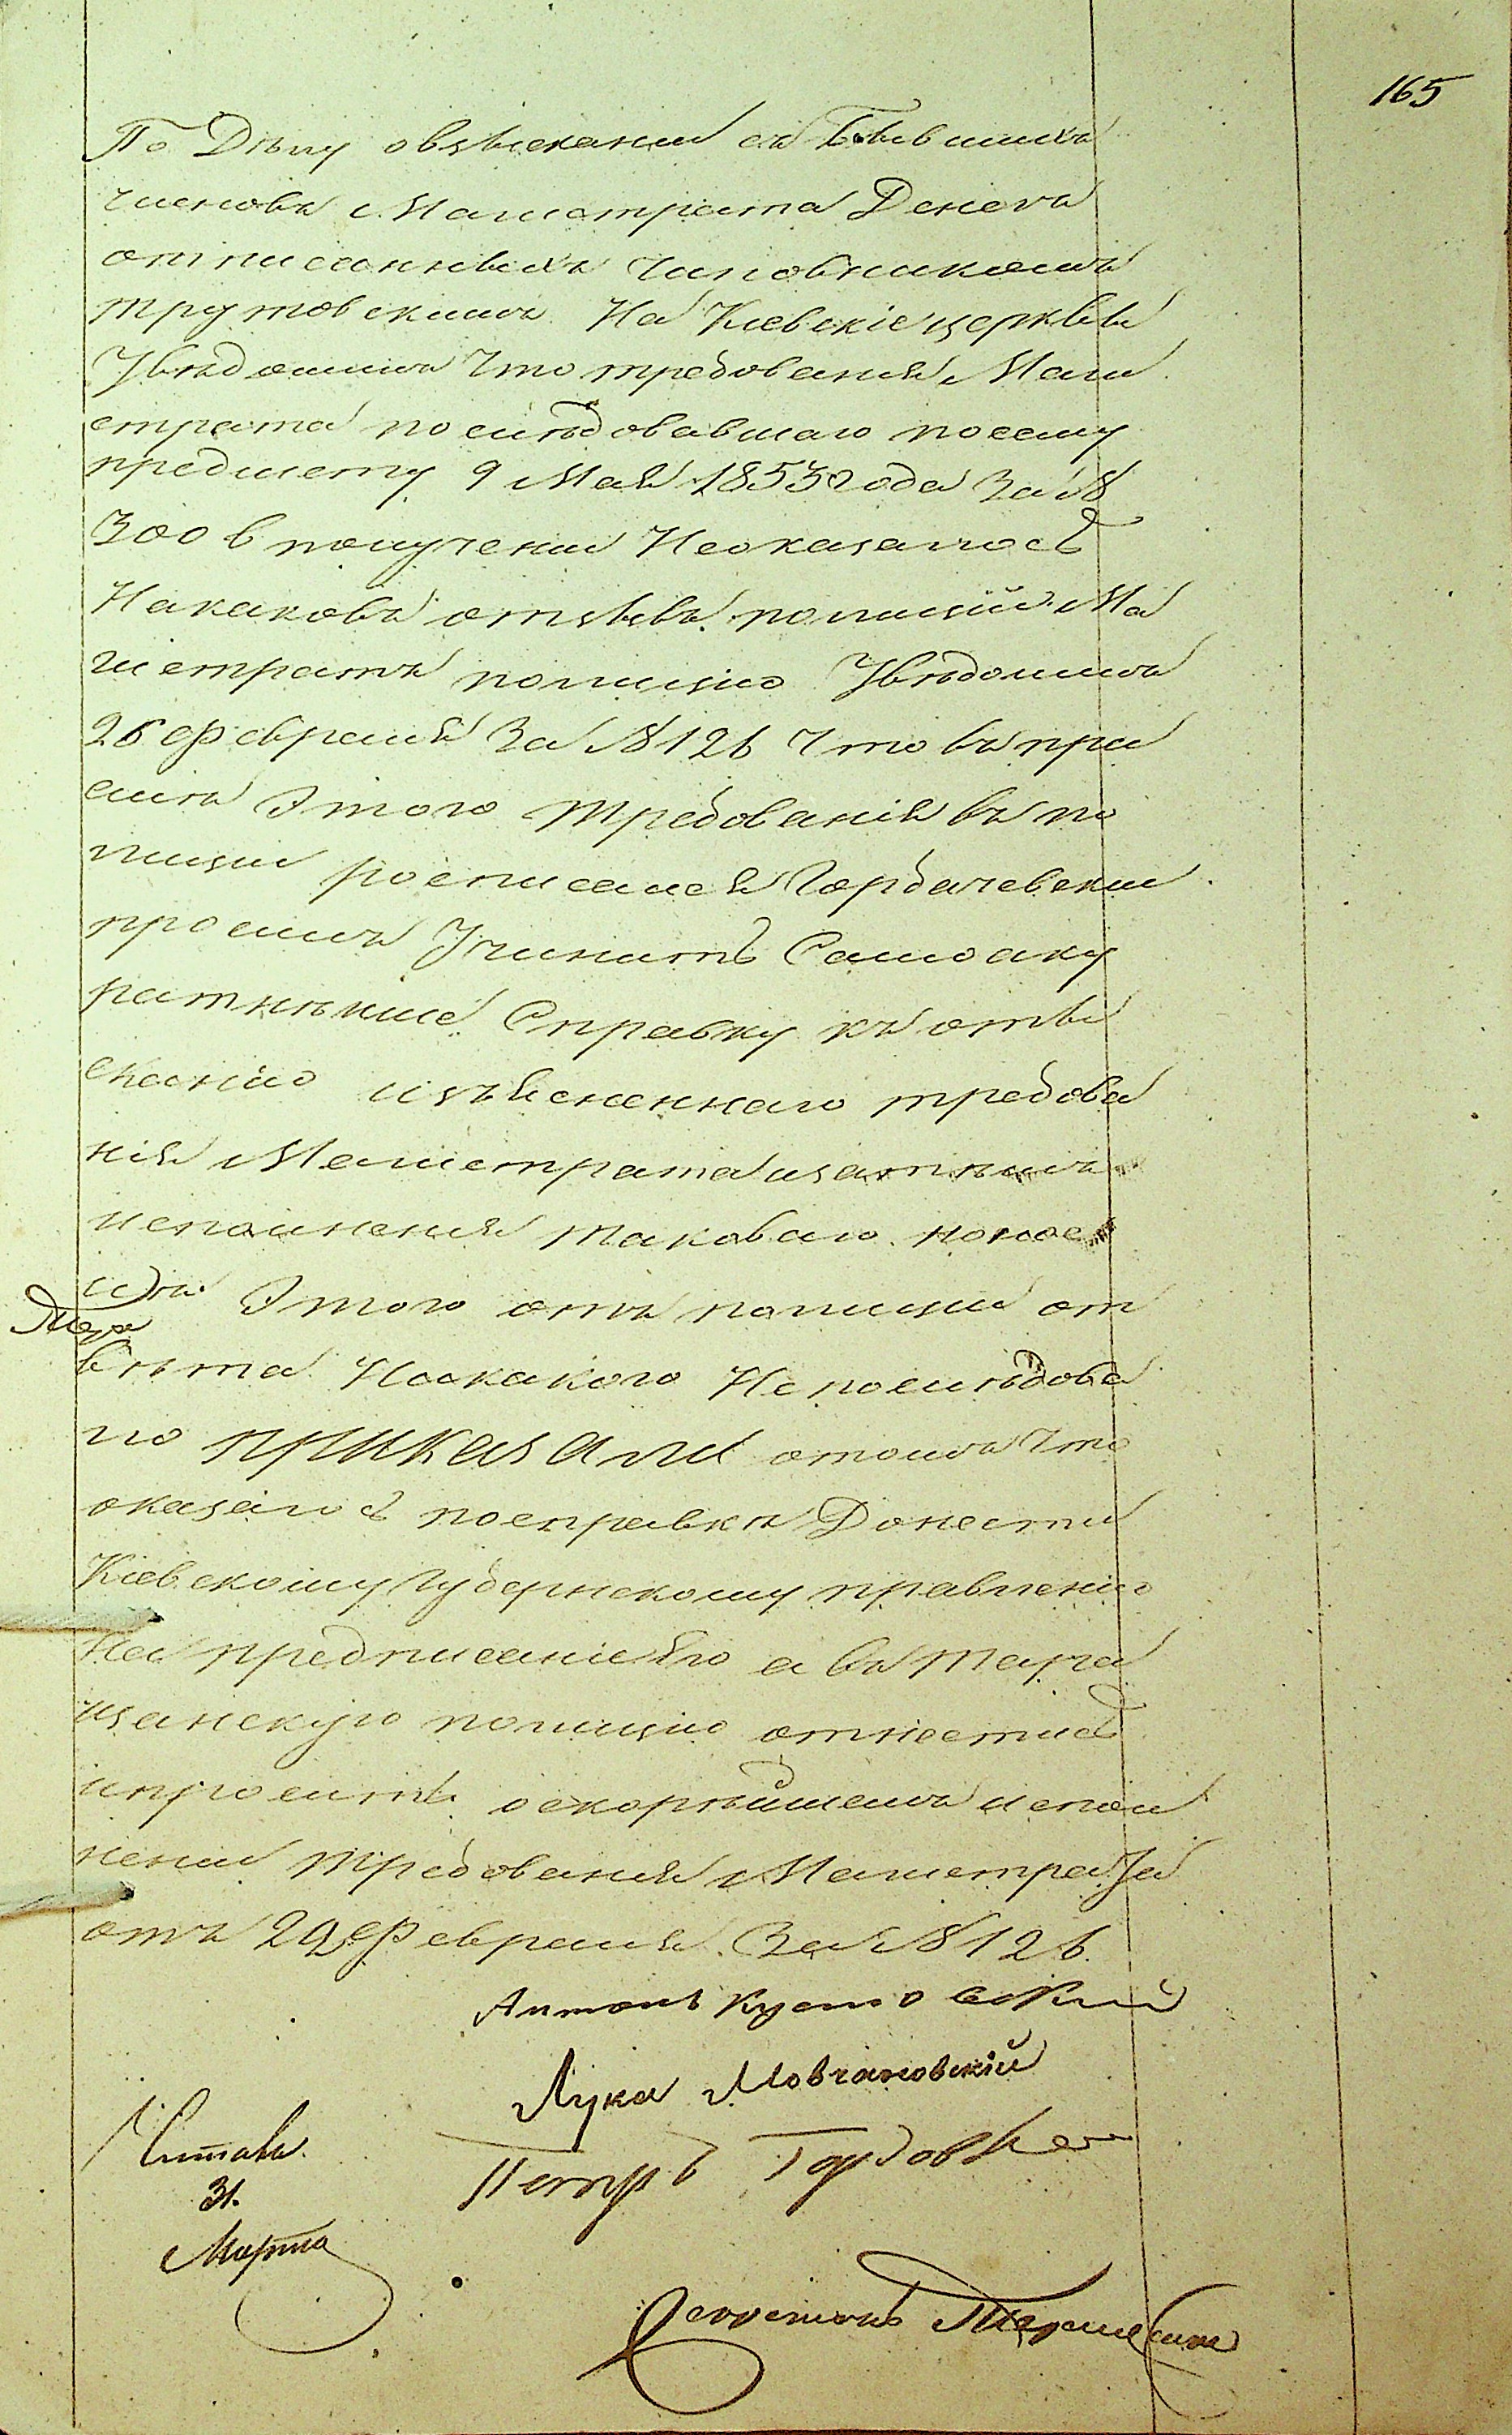 165
По Дѣлу овзысканіи съ Бывшихъ
членовъ Магистрата Денегъ
отписанныхъ чиновникомъ
трутовскимъ На Кіевскіе церквы
Увѣдомилъ Что требованія Маги
страта последовавшаго посему
предмету 9 Мая 1853 года За №
300 в получении Неоказалось
Накаковъ отзывъ полиціи Ма
гистратъ полицію Увѣдомилъ
26 февраля За № 126 Что въ при
емѣ Этого требованія въ по
лиціи росписался Горбачевски
просилъ Учинить Самоаку
ратнѣйше Справку къ оты
сканію изъясненнаго требова
нія Магистрата изатѣмъ
исполненія таковаго. нопос
идъ Этого отъ полиціи от
вѣта Ниакакого Непослѣдова
ло приказали отомъ Что
оказалось посправкѣ Донести
Кіевскому Губернскому правленію
На предписаніе Его а въ Тара
щанскую полицію отнестись
ипросить оскорѣйшемъ испол
неніи требованія Магистрата
отъ 29 февраля За № 126.
Антонъ
Лука Мовчановскій
Петръ
Читалъ
31.
Марта